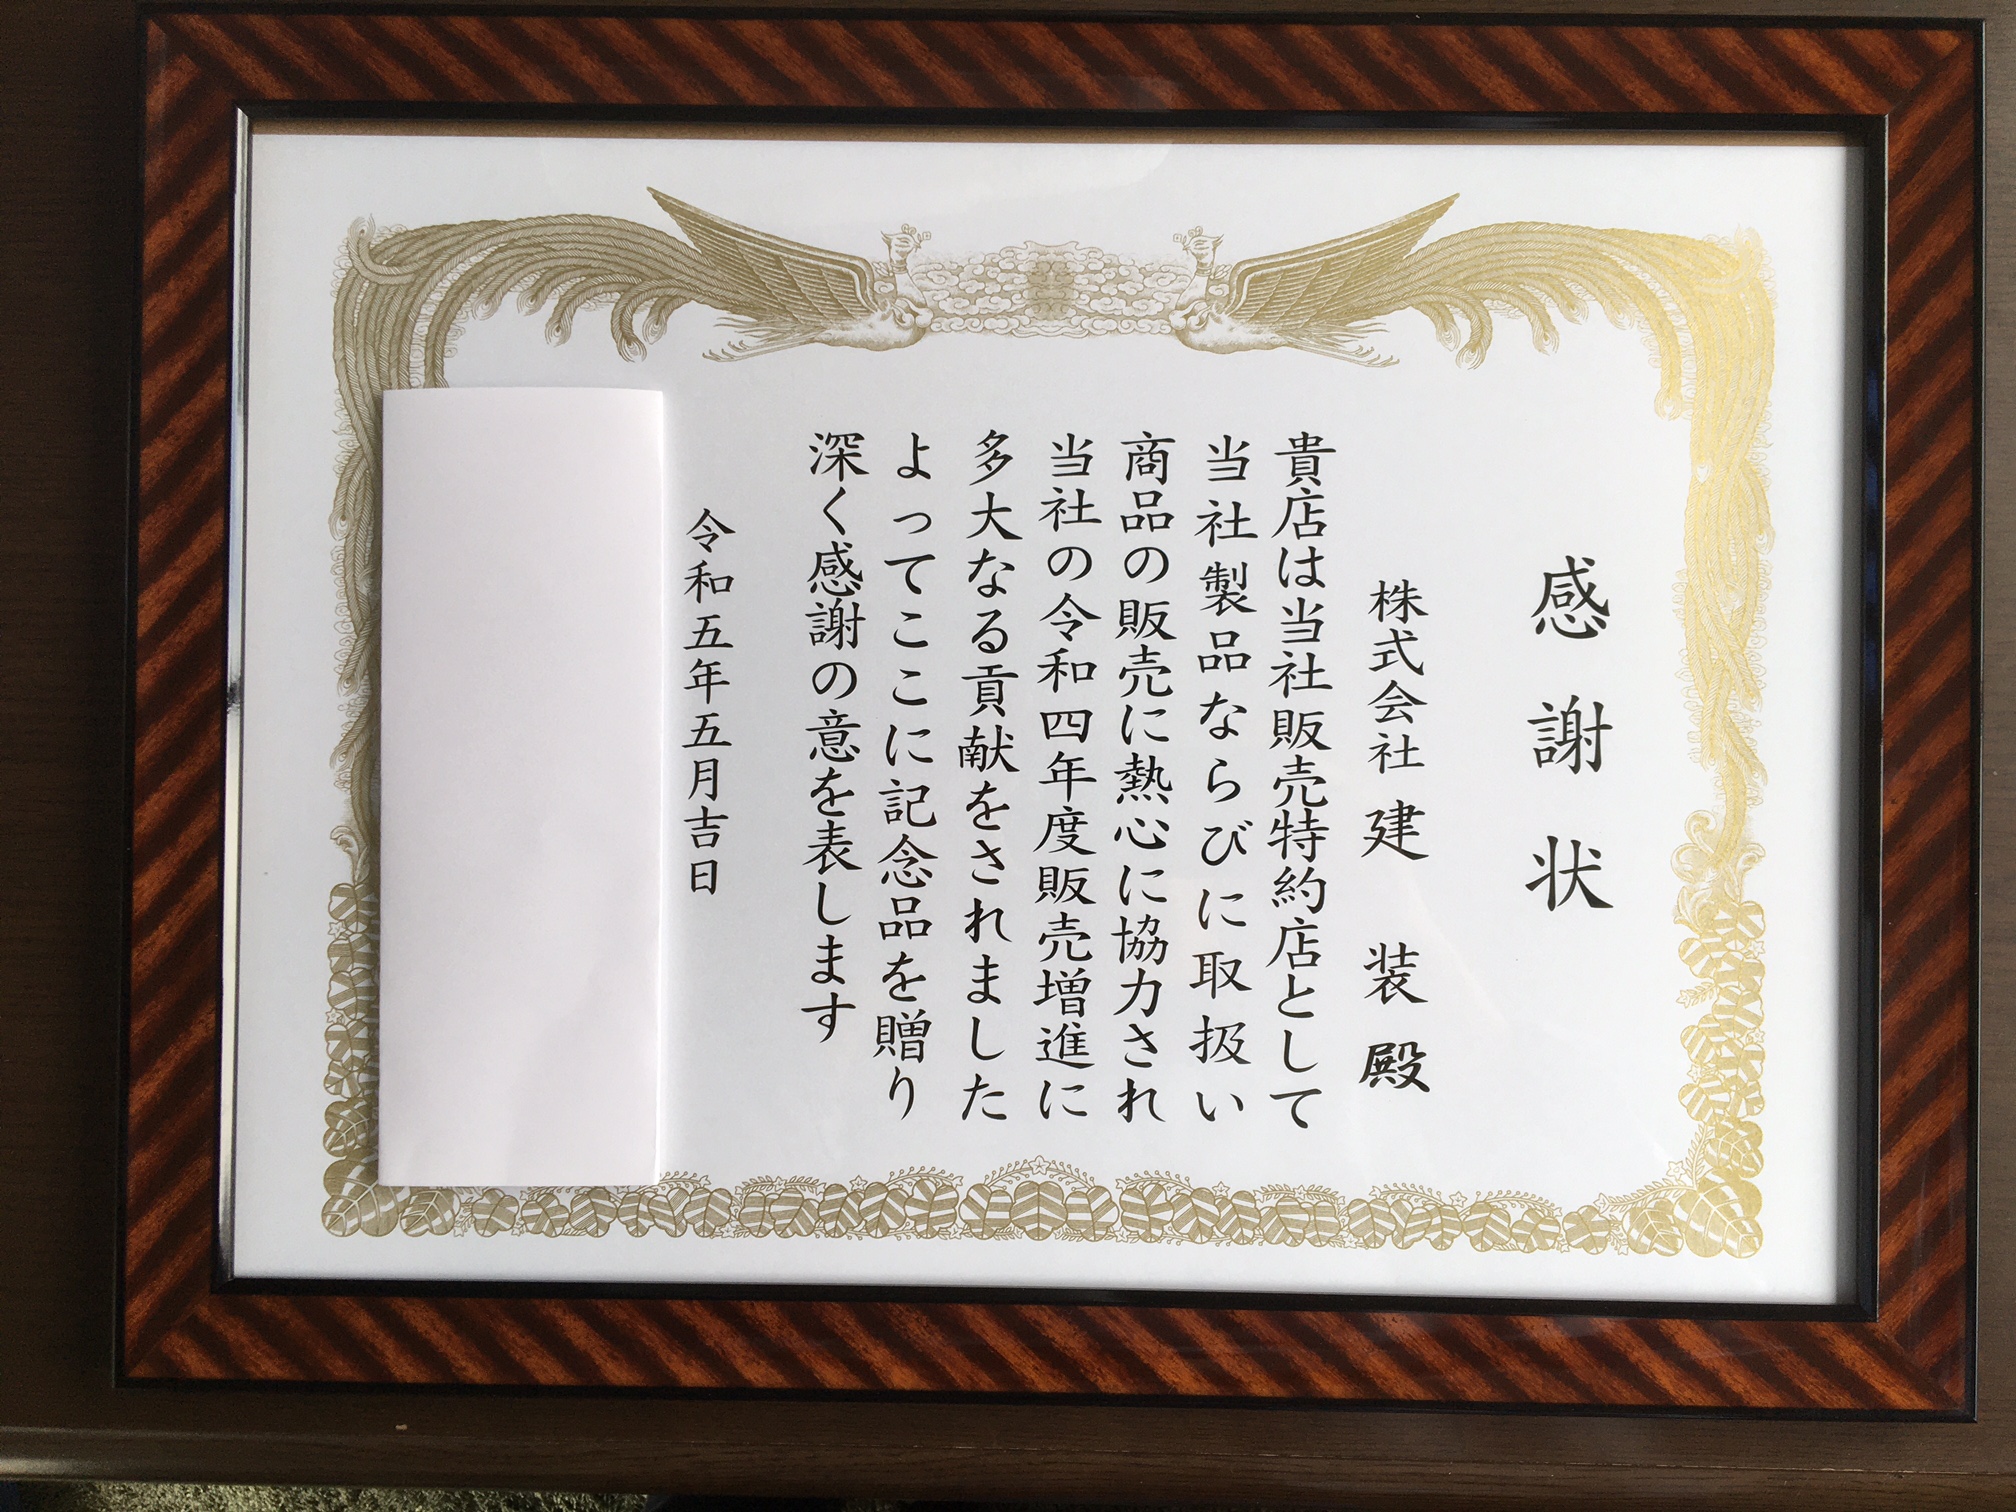 感謝状
株式会社建装殿
貴店は当社販売特約店として
当社製品ならびに取扱い
商品の販売に熱心に協力され
当社の令和四年度販売増進に
多大なる貢献をされました
よってここに記念品を贈り
深く感謝の意を表します
令和五年五月吉日